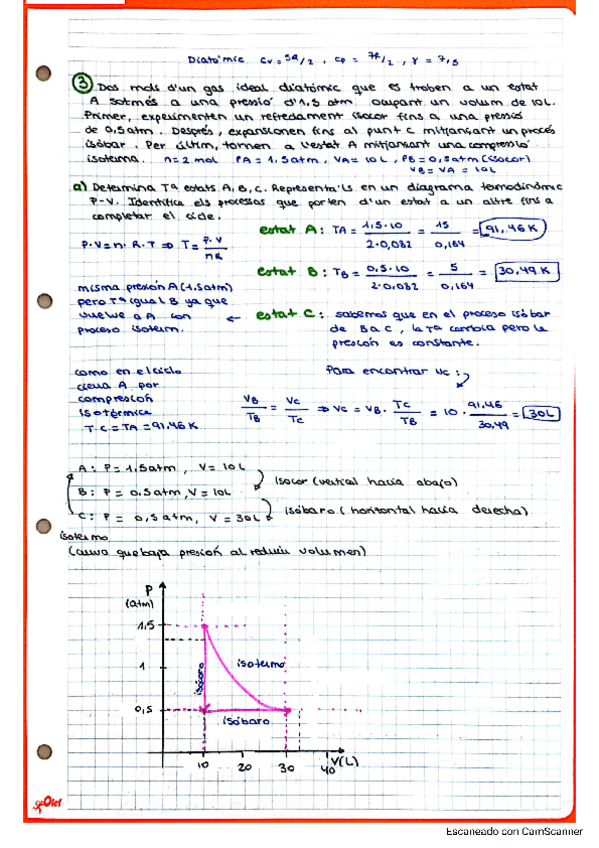 Diatòmic Cv = 5R/2 , Cp = 7R/2 , γ = 7/5
③ Dos mols d'un gas ideal diatòmic que es troben a un estat
A sotmés a una pressió d'1,5 atm ocupant un volum de 10L.
Primer, experimenten un refredament isocor fins a una pressió
de 0,5atm. Després, expansionen fins al punt C mitjançant un procés
isòbar. Per últim, tornen a l'estat A mitjansant una compressió
isoterma. n=2 mol PA = 1,5atm, VA= 10L, PB=0,5atm (isocor)
VB = VA = 10L
a) Determina Tª estats A, B, C. Representa'ls en un diagrama termodinàmic
P-V. Identifica els processos que porten d'un estat a un altre fins a
completar el cicle.
estat A: TA = 1,5·10 / 2·0,082 = 15 / 0,164 = 91,46K
P·V=n·R·T ⇒ T = P·V / nR
estat B: TB = 0,5·10 / 2·0,082 = 5 / 0,164 = 30,49K
misma presión A (1,5atm)
pero Tª igual B ya que
vuelve a A con
proceso isoterm.
← estat C: sabemos que en el proceso isòbar
de B a C, la Tª cambia pero la
presión es constante.
como en el ciclo
lleva A por
compresión
isotérmica
TC=TA=91,46K
Para encontrar Vc:
VB / TB = Vc / Tc ⇒ Vc = VB · Tc / TB = 10 · 91,46 / 30,49 = 30L
A: P = 1,5atm, V = 10L
Isocor (vertical hacia abajo)
B: P = 0,5atm, V = 10L
isóbaro (horizontal hacia derecha)
C: P = 0,5atm, V = 30L
isotermo
(curva que baja presión al reducir volumen)
P
(atm)
1,5
1
0,5
isóbaro
isotermo
isóbaro
10 20 30 40 V(L)
Escaneado con CamScanner